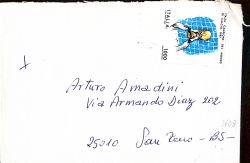 ITALIA
1000
Arturo Amadini
Via Armando Diaz 202
25010 San Zeno - BS -